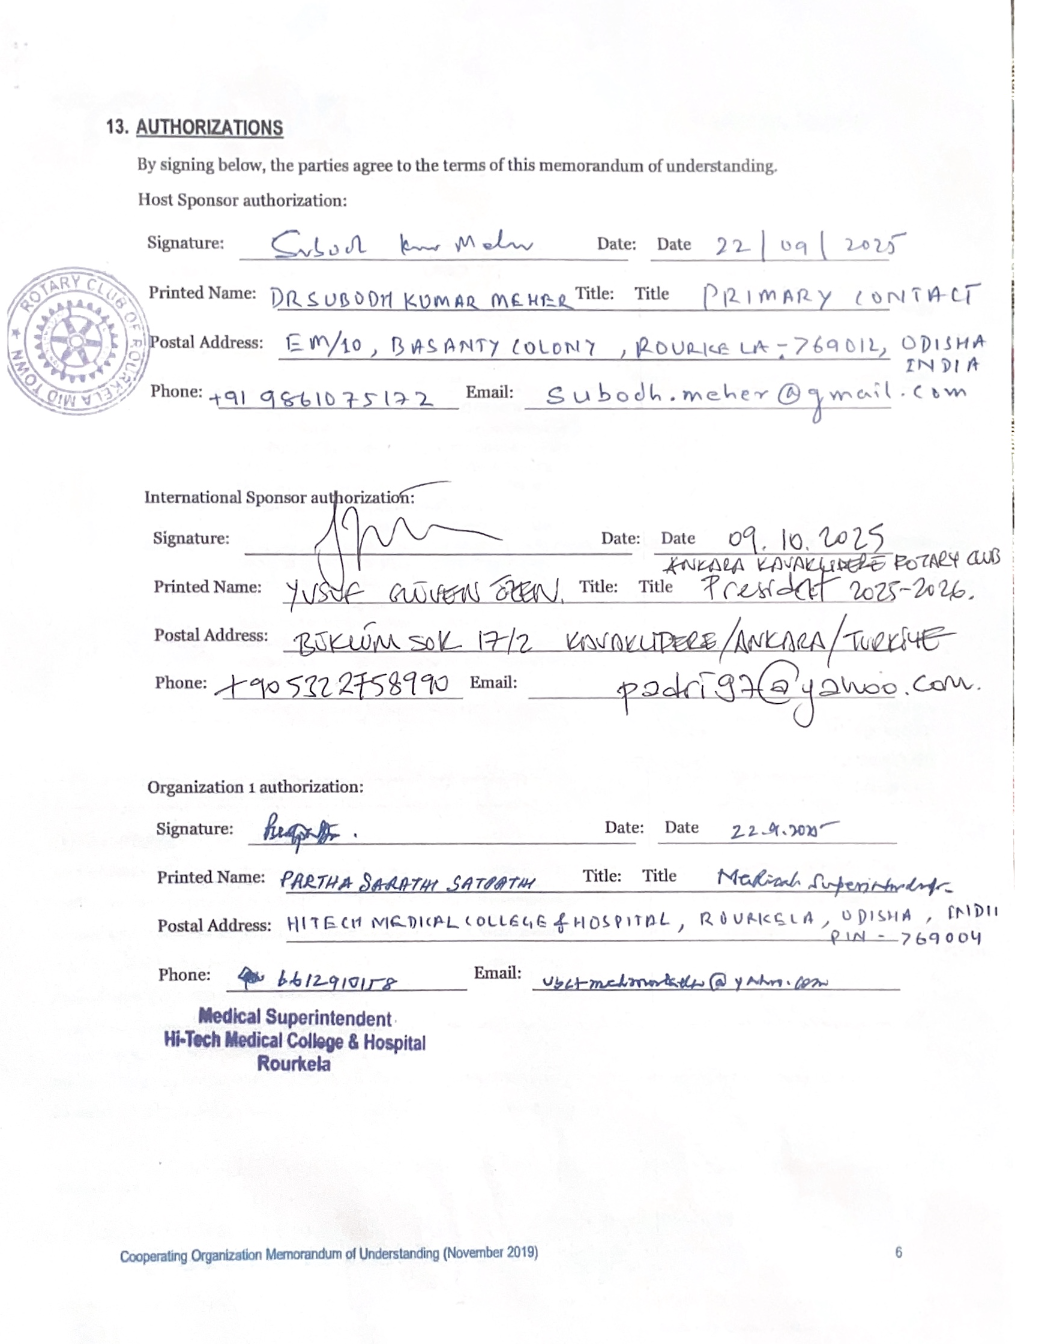 13. AUTHORIZATIONS
By signing below, the parties agree to the terms of this memorandum of understanding.
Host Sponsor authorization:
Signature: Subodh Kumar Meher Date: Date 22/09/2025
Printed Name: DR SUBODH KUMAR MEHER Title: Title PRIMARY CONTACT
Postal Address: EM/10, BASANTY COLONY, ROURKELA-769012, ODISHA
INDIA
Phone: +91 9861075172 Email: subodh.meher@gmail.com
ROTARY CLUB OF ROURKELA MID TOWN
International Sponsor authorization:
Signature: Date: Date 09.10.2025
ANKARA KAVAKLIDERE ROTARY CLUB
Printed Name: YUSUF GÜVEN Title: Title President 2025-2026.
Postal Address: BÜKLÜM SOK 17/2 KAVAKLIDERE/ANKARA/TURKİYE
Phone: +905322758990 Email: padri97@yahoo.com.
Organization 1 authorization:
Signature: Date: Date 22.9.2025
Printed Name: PARTHA SARATHI SATPATHI Title: Title Medical Superintendent
Postal Address: HITECH MEDICAL COLLEGE & HOSPITAL, ROURKELA, ODISHA, INDIA
PIN - 769004
Phone: 6612910158 Email:
Medical Superintendent
Hi-Tech Medical College & Hospital
Rourkela
Cooperating Organization Memorandum of Understanding (November 2019) 6